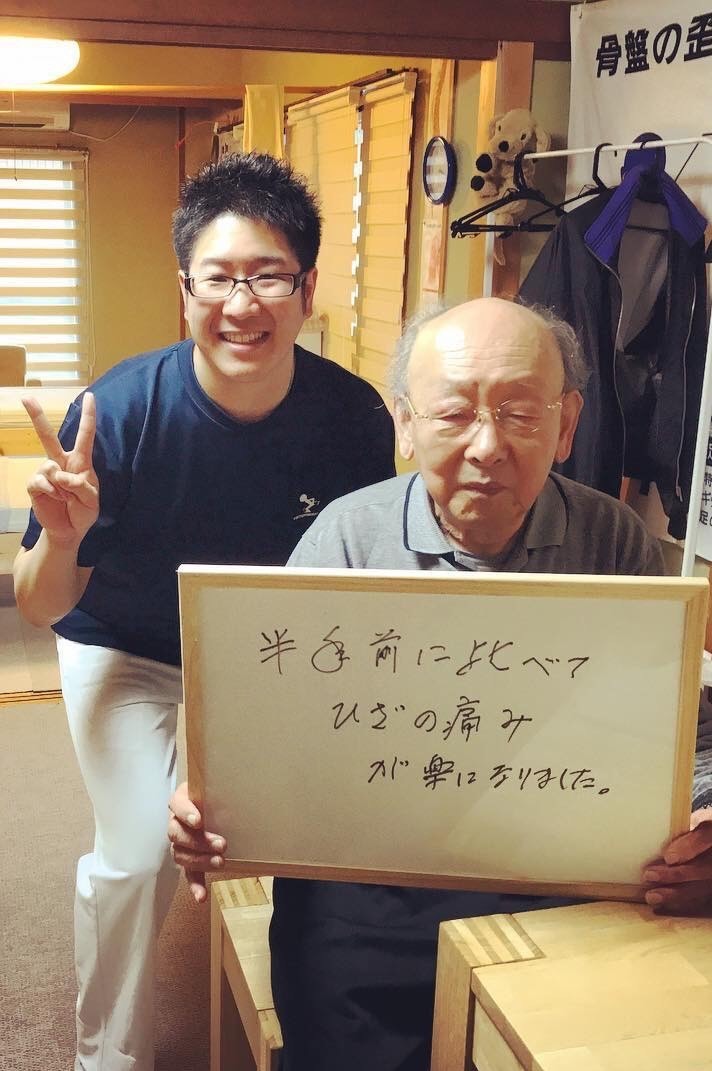 骨盤の歪
半年前に比べて
ひざの痛み
が楽になりました。